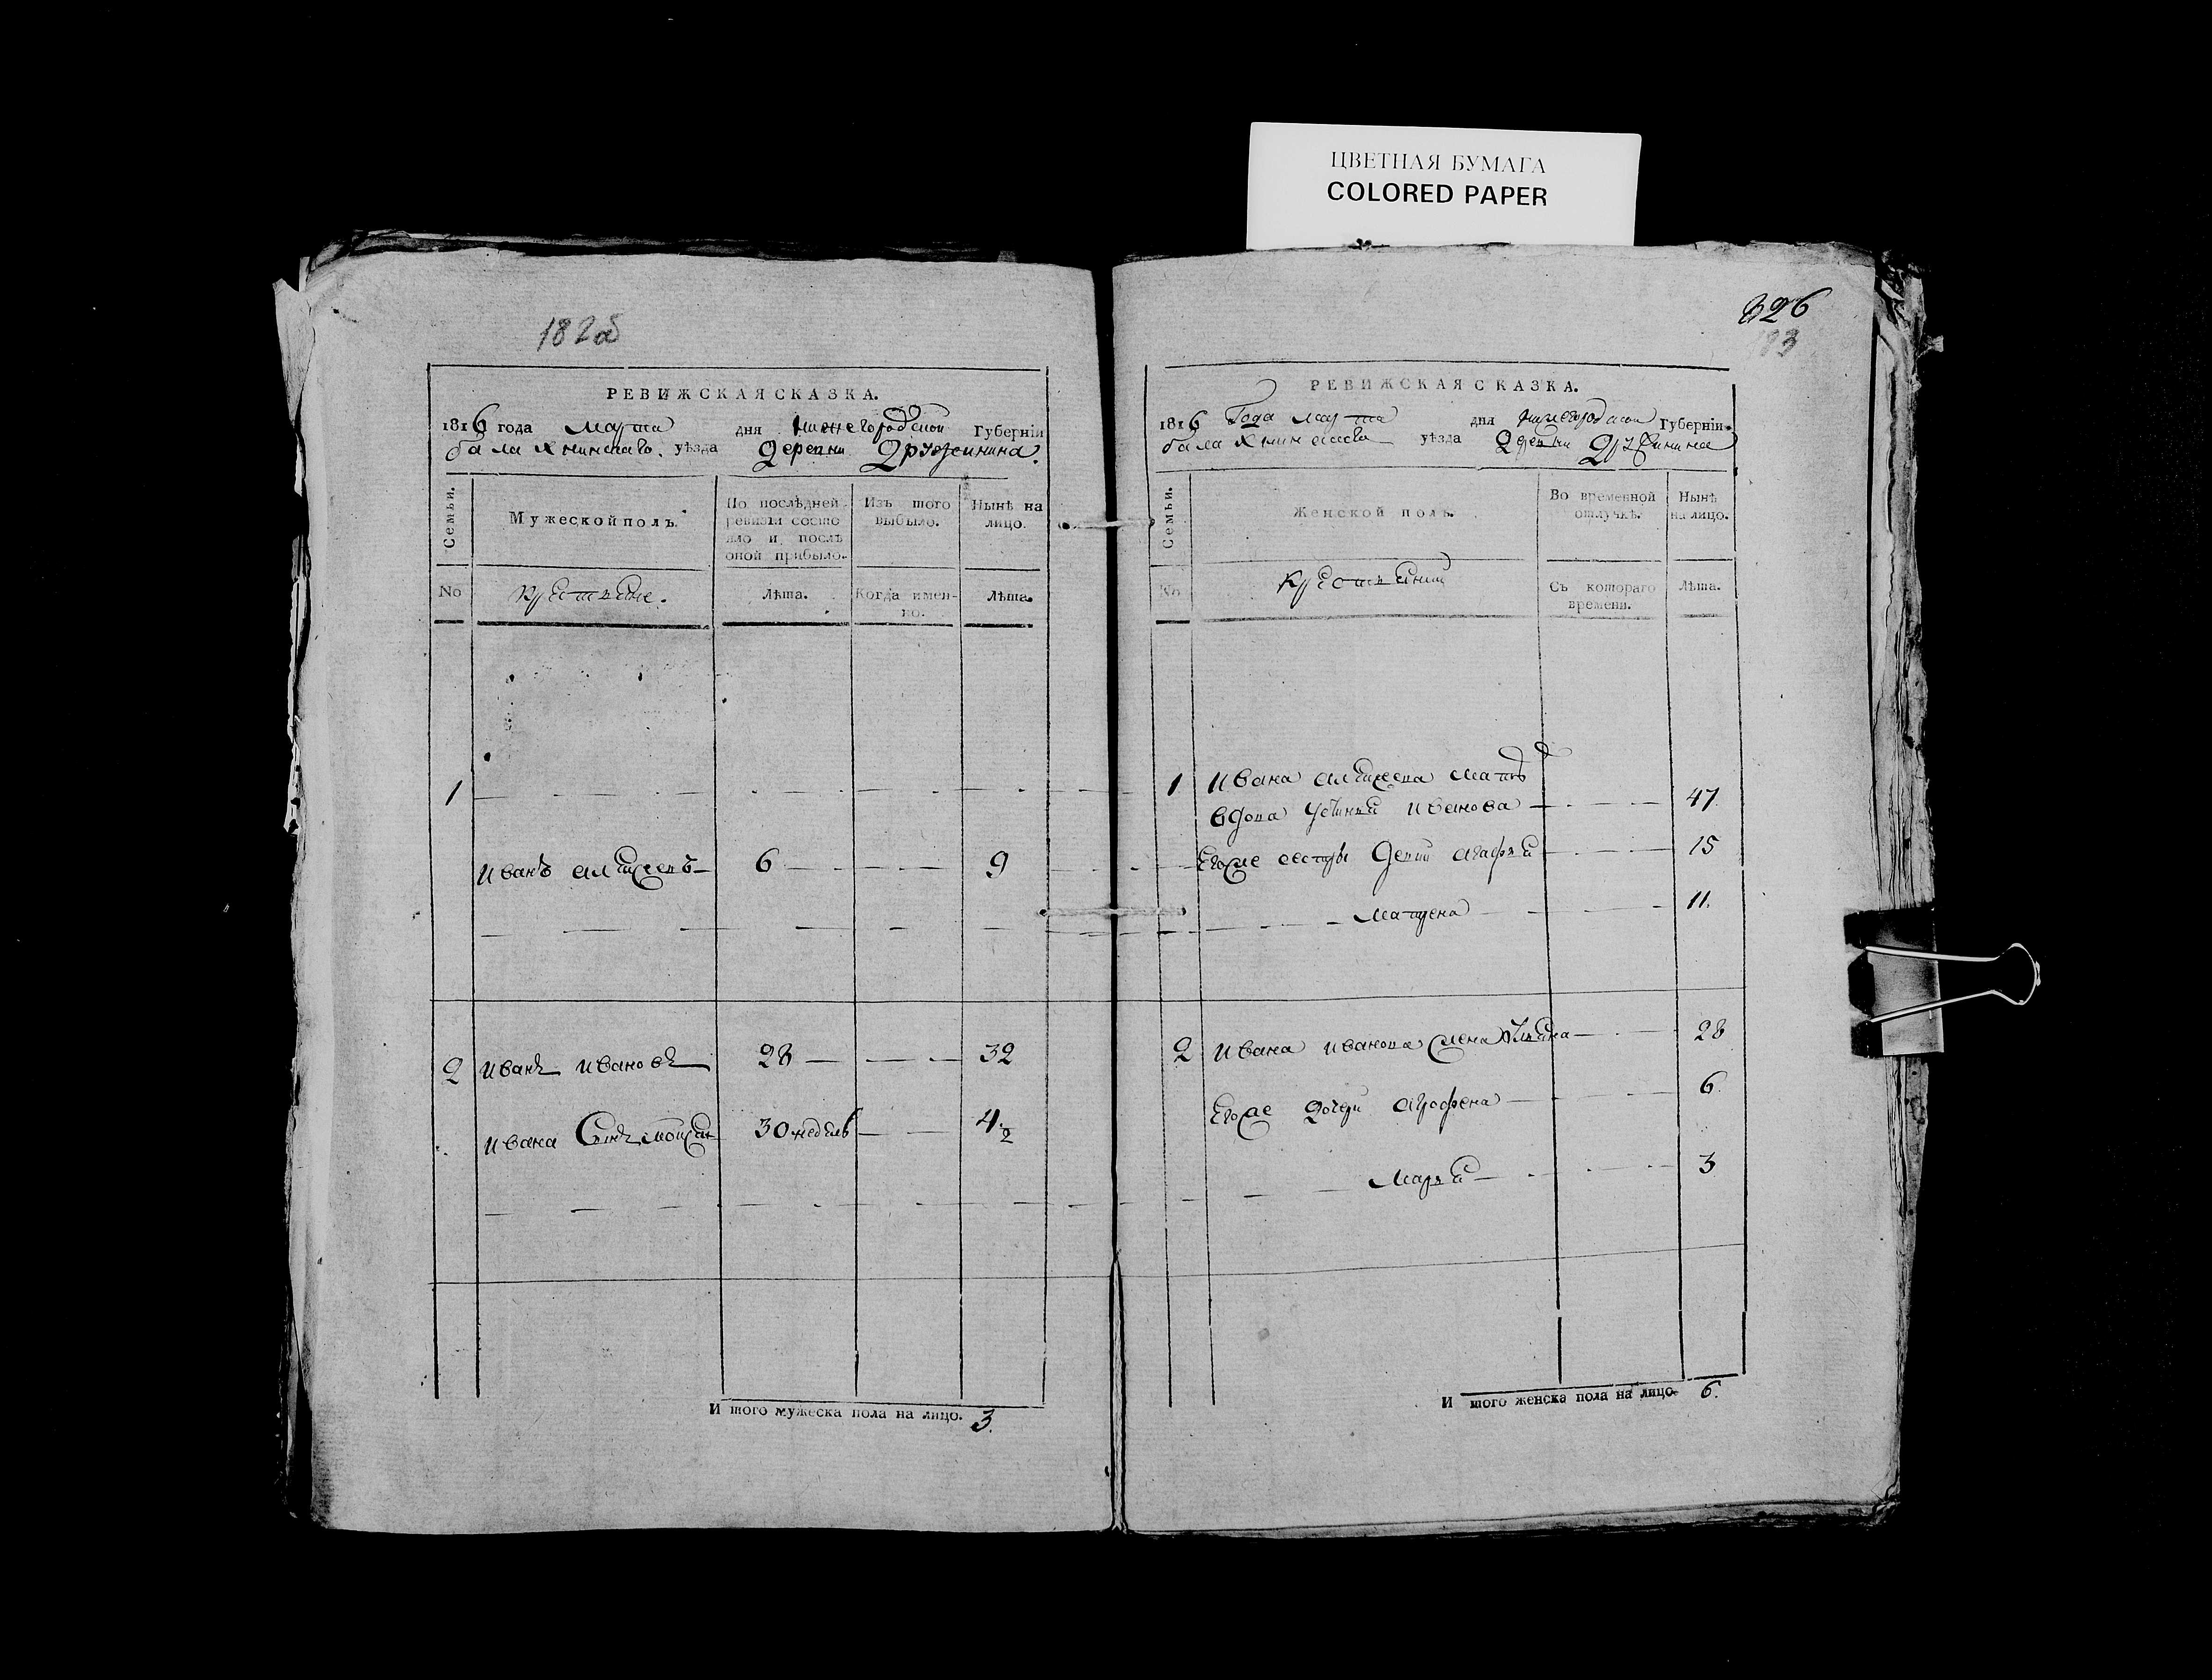 ЦВЕТНАЯ БУМАГА
COLORED PAPER
182об
РЕВИЖСКАЯ СКАЗКА.
1816 года марта дня нижегородской Губерніи
балахнинскаго уѣзда Деревни Дружинина.
Семьи.
Мужеской полъ.
По послѣдней ревизіи состояло и послѣ оной прибыло.
Изъ того выбыло.
Нынѣ на лицо.
No
крестьяне.
Лѣта.
Когда именно.
Лѣта.
1
иванъ 6 9
2 иванъ ивановъ 28 32
ивана Сынъ 30 недѣль 4 1/2
И того мужеска пола на лицо. 3.
326
183
РЕВИЖСКАЯ СКАЗКА.
1816 Года марта дня нижегородской Губерніи.
балахнинскаго уѣзда Деревни Дружинина
Семьи.
Женской полъ.
Во временной отлучкѣ.
Нынѣ на лицо.
No
Съ котораго времени.
Лѣта.
1 ивана мать
вдова устинья иванова 47.
Егоже сестры агафья 15
матрена 11.
2 ивана иванова жена 28
Егоже дочери аграфена 6.
марья 3
И того женска пола на лицо 6.